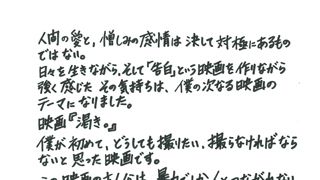 人間の愛と、憎しみの感情は決して対極にあるもの
ではない。
日々を生きながら、そして「告白」という映画を作りながら
強く感じたその気持ちは、僕の次なる映画の
テーマになりました。
映画『渇き。』
僕が初めて、どうしても撮りたい、撮らなければなら
ないと思った映画です。